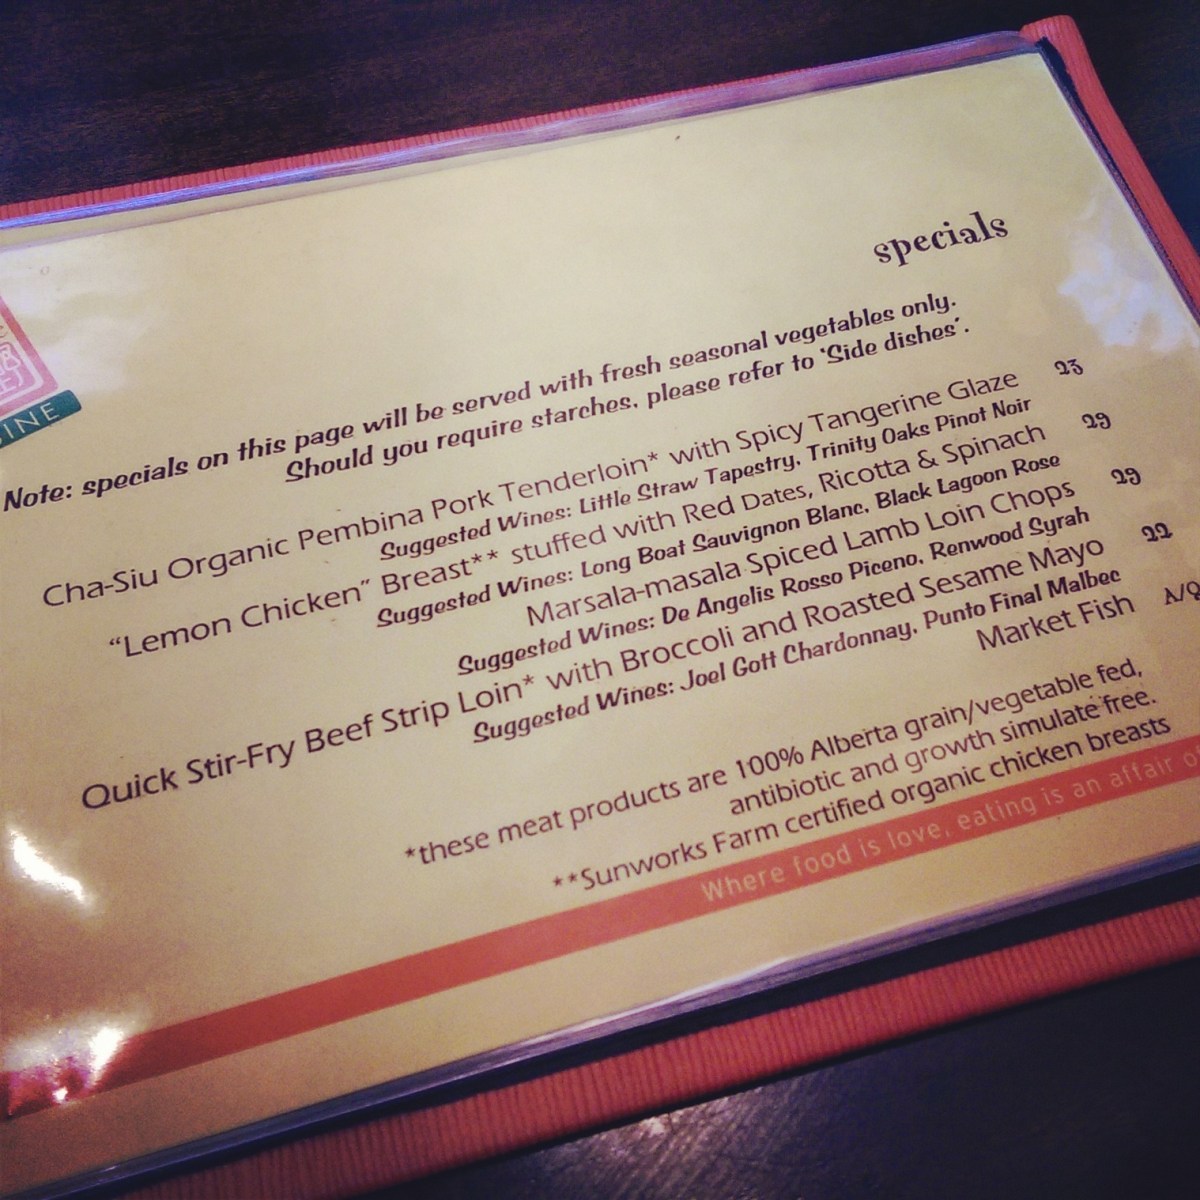 specials
Note: specials on this page will be served with fresh seasonal vegetables only.
Should you require starches, please refer to 'Side dishes'.
Cha-Siu Organic Pembina Pork Tenderloin* with Spicy Tangerine Glaze 23
Suggested Wines: Little Straw Tapestry, Trinity Oaks Pinot Noir
"Lemon Chicken" Breast** stuffed with Red Dates, Ricotta & Spinach 29
Suggested Wines: Long Boat Sauvignon Blanc, Black Lagoon Rose
Marsala-masala Spiced Lamb Loin Chops 29
Suggested Wines: De Angelis Rosso Piceno, Renwood Syrah
Quick Stir-Fry Beef Strip Loin* with Broccoli and Roasted Sesame Mayo 22
Suggested Wines: Joel Gott Chardonnay, Punto Final Malbec
Market Fish A/Q
*these meat products are 100% Alberta grain/vegetable fed,
antibiotic and growth simulate free.
**Sunworks Farm certified organic chicken breasts
Where food is love, eating is an affair o